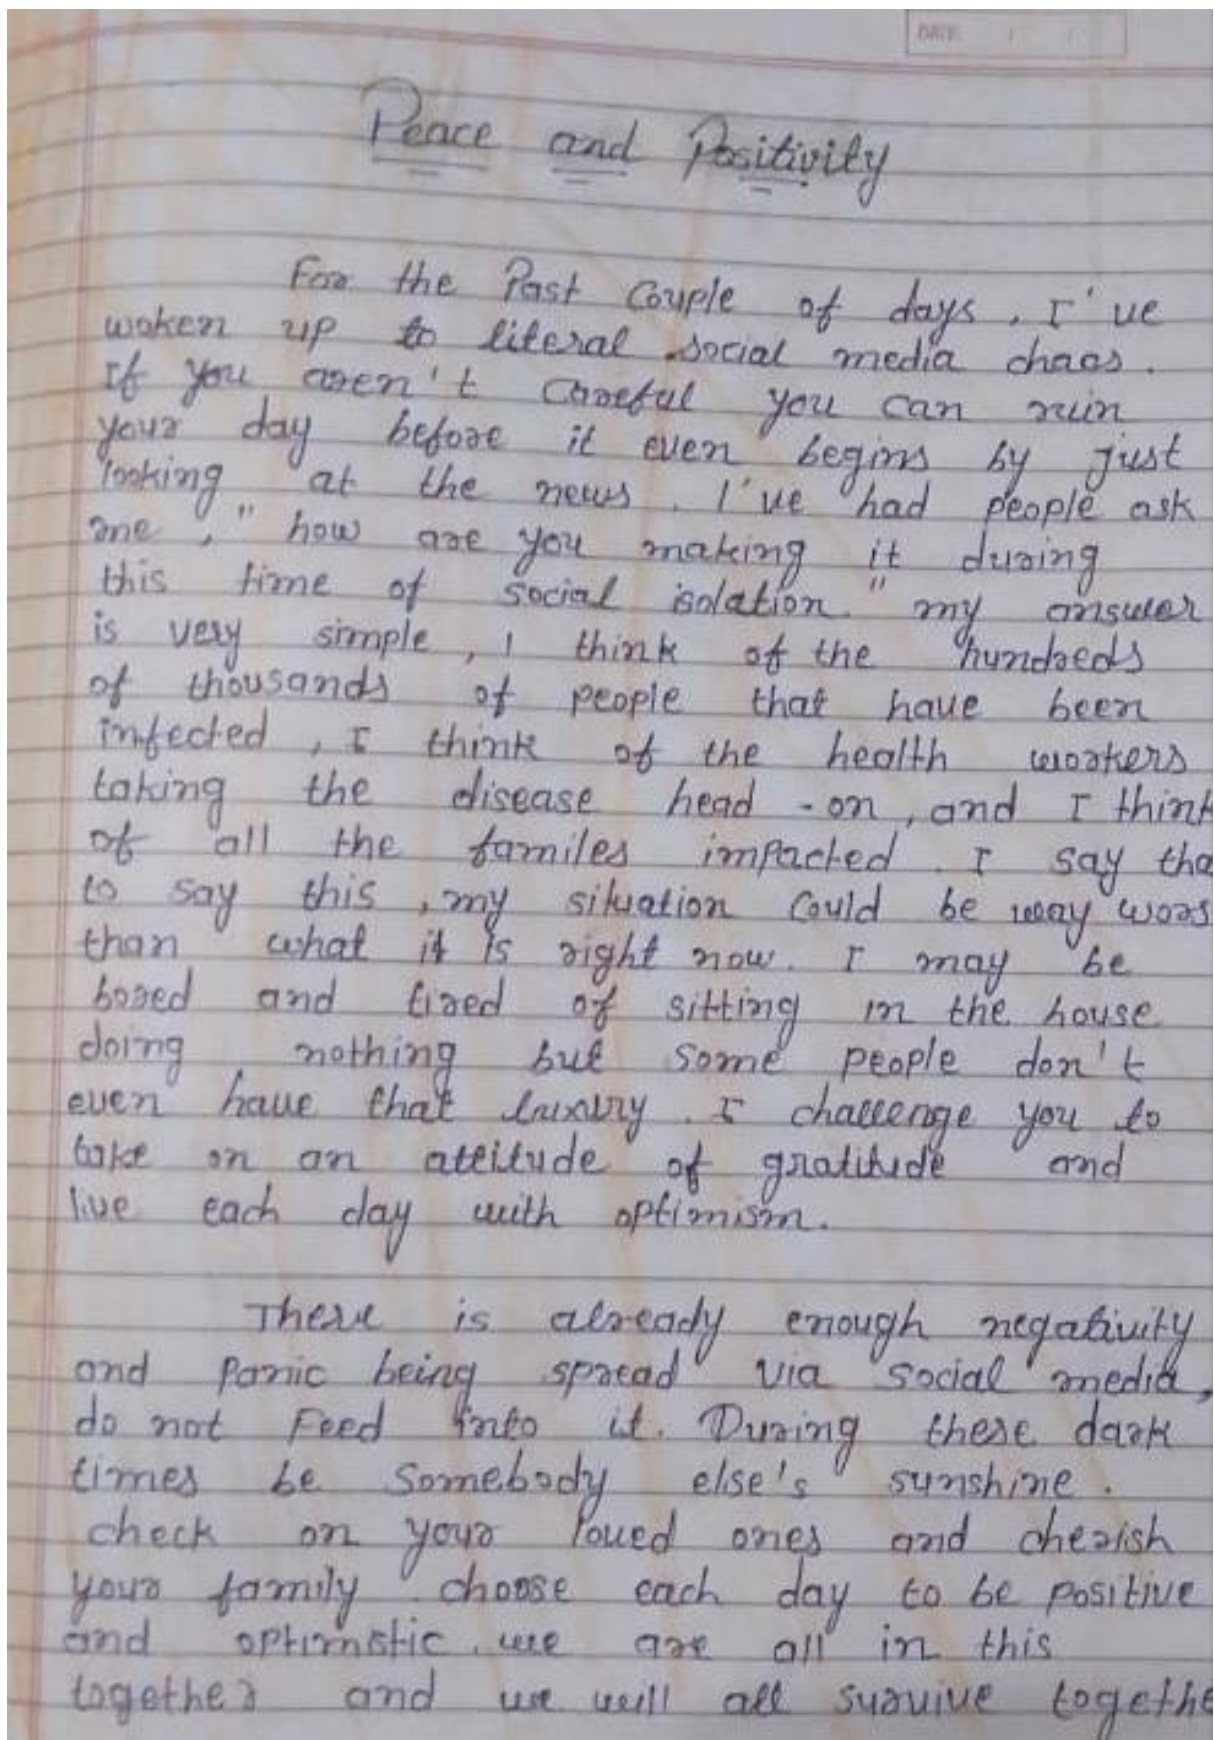 DATE: / /
Peace and Positivity
For the Past Couple of days, I've
woken up to literal social media chaos.
If you aren't Careful you can ruin
your day before it even begins by just
looking at the news. I've had people ask
me, "how are you making it during
this time of social isolation." my answer
is very simple, I think of the hundreds
of thousands of people that have been
infected, I think of the health workers
taking the disease head-on, and I think
of all the familes impacted. I say tha
to say this, my situation Could be way wors
than what it is right now. I may be
bored and tired of sitting in the house
doing nothing but some people don't
even have that luxury. I challenge you to
take on an attitude of gratitude and
live each day with optimism.
There is already enough negativity
and Panic being spread via social media,
do not Feed into it. During these dark
times be Somebody else's sunshine.
check on your loved ones and cherish
your family. choose each day to be positive
and optimstic. we are all in this
together and we will all survive togethe